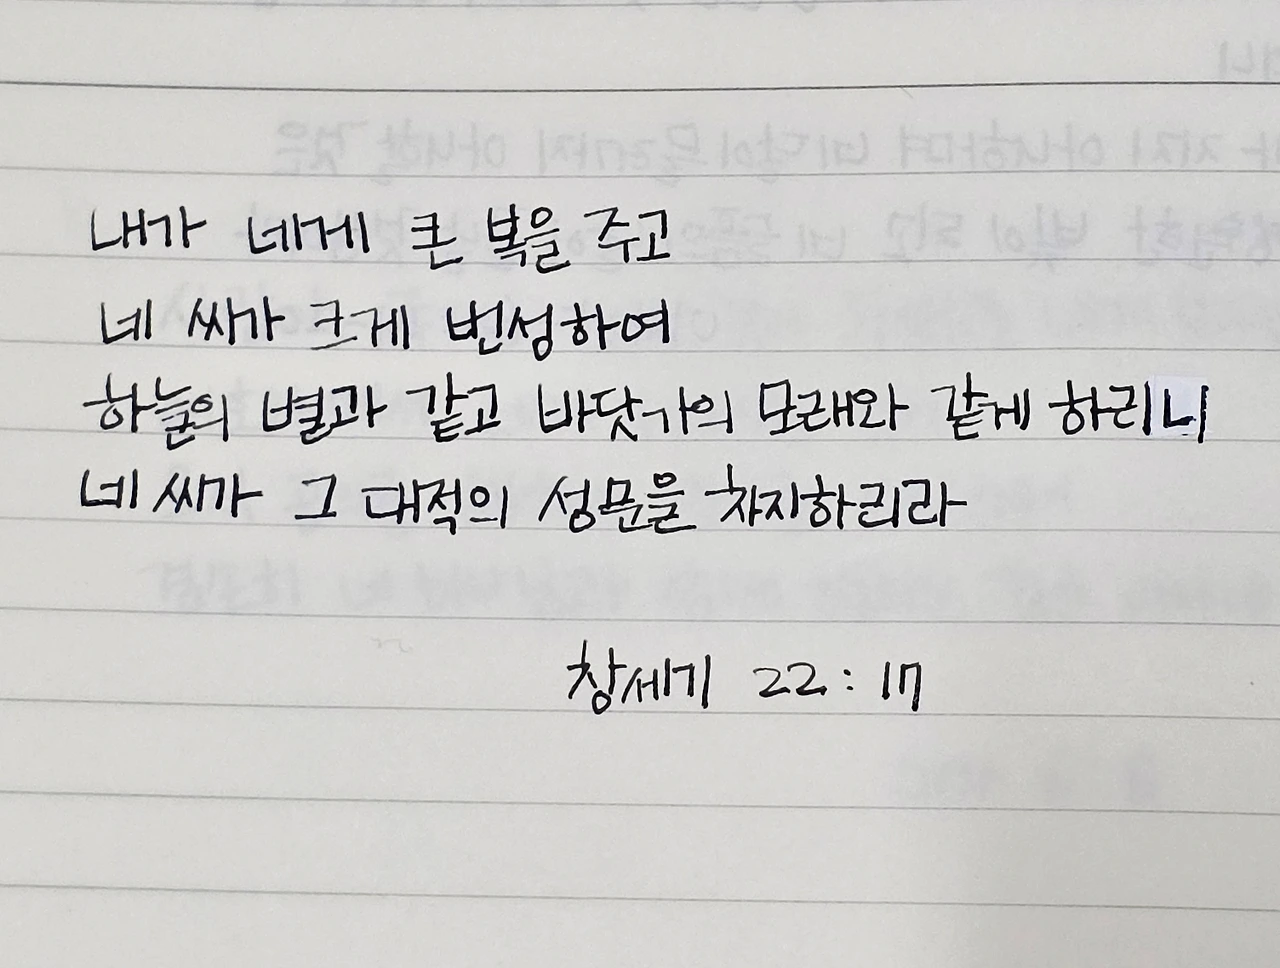 내가 네게 큰 복을 주고
네 씨가 크게 번성하여
하늘의 별과 같고 바닷가의 모래와 같게 하리니
네 씨가 그 대적의 성문을 차지하리라
창세기 22 : 17